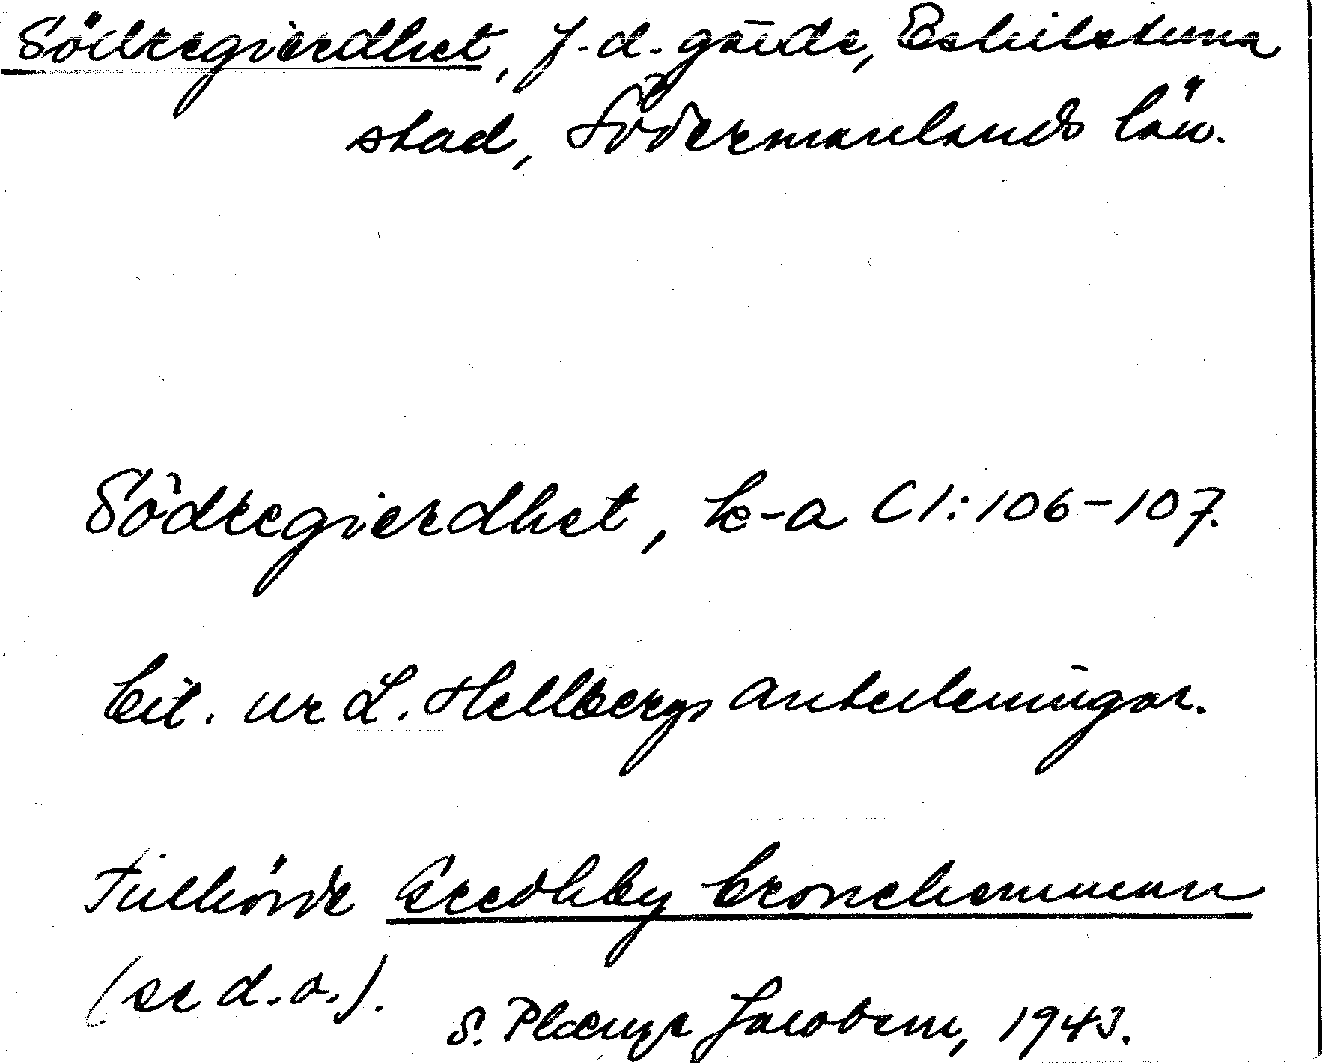 Södregierdhet, f.d. gärde, Eskilstuna
stad, Södermanlands län.
Södregierdhet, k-a C1:106-107.
Cit. ur L. Hellbergs anteckningar.
Tillhörde Sredhby
(se d.o.).
S. Jacobson, 1943.